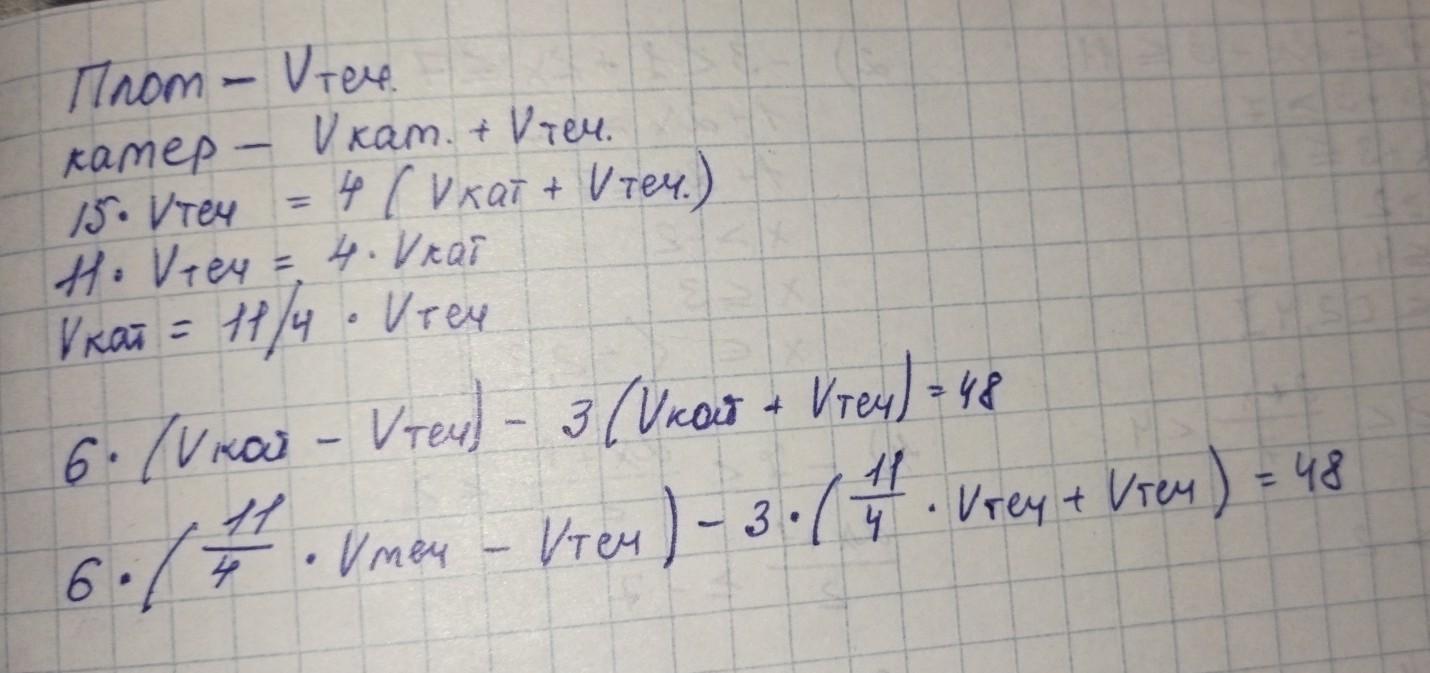 Плот – Vтеч.
катер – Vкат. + Vтеч.
15· Vтеч = 4 ( Vкат + Vтеч.)
11· Vтеч = 4· Vкат
Vкат = 11/4 · Vтеч
6· (Vкат – Vтеч) – 3 (Vкат + Vтеч) = 48
6· ( 11/4 · Vтеч – Vтеч ) – 3· ( 11/4 · Vтеч + Vтеч ) = 48